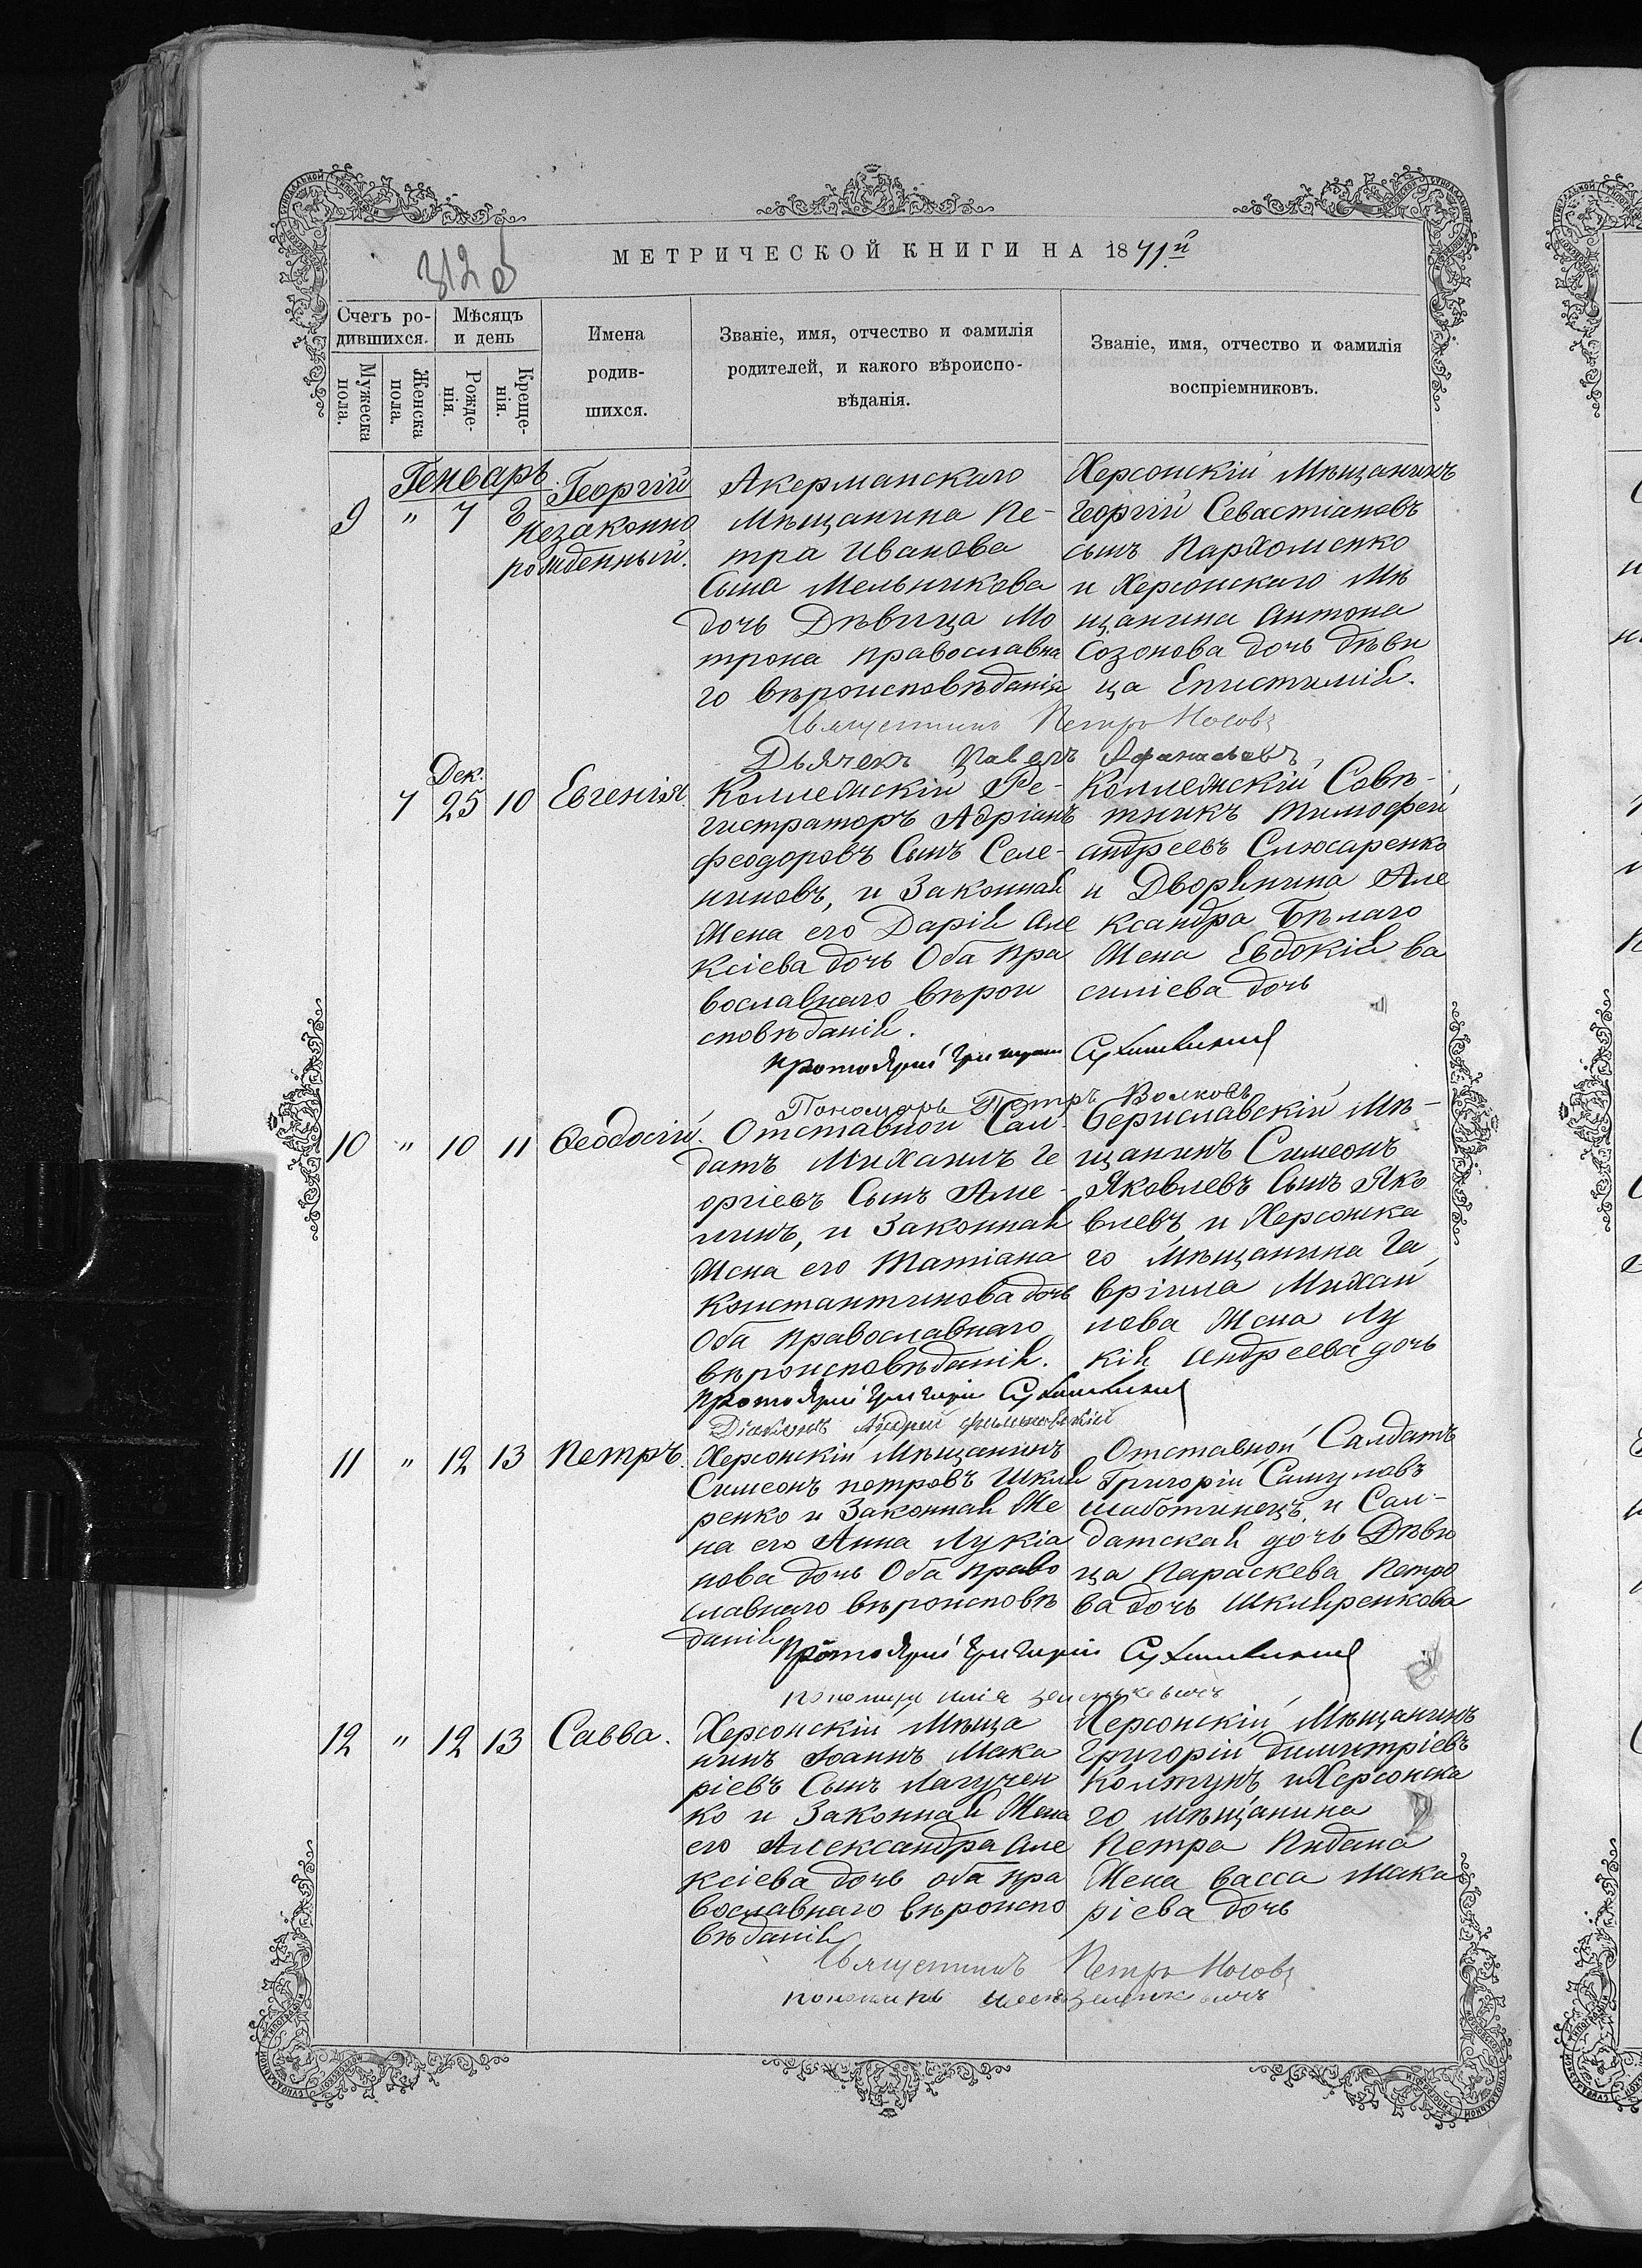 312 об
МЕТРИЧЕСКОЙ КНИГИ НА 1871й
Счетъ ро-
дившихся.
Мѣсяцъ
и день
Мужеска
пола.
Женска
пола.
Рожде-
нія.
Креще-
нія.
Имена
родив-
шихся.
Званіе, имя, отчество и фамилія
родителей, и какого вѣроиспо-
вѣданія.
Званіе, имя, отчество и фамилія
воспріемниковъ.
Генварь
9 " 7 8
Георгій
Незаконно
рожденный.
Акерманскаго
Мѣщанина Пе-
тра Иванова
Сына Мельникова
дочь Дѣвица Мо
трона православна
го вѣроисповѣданія
Херсонскій Мѣщанинъ
Георгій Севастіановъ
сынъ Пархоменко
и Херсонскаго Мѣ
щанина Антона
Созонова дочь дѣви
ца Епистимія.
Священникъ Петръ Носовъ
Дьячекъ Павелъ Афанасьевъ
Дек.
7 25 10
Евгенія
Коллежскій Ре-
гистраторъ Адріанъ
Феодоровъ Сынъ Селе-
ниновъ, и Законная
Жена его Дарія Але
ксіева дочь Оба Пра
вославнаго вѣрои
сповѣданія.
Коллежскій Совѣ-
тникъ Тимофей
Андреевъ Слюсаренко
и Дворянина Але
ксандра Бѣлаго
Жена Евдокія Ва
силіева дочь
Протоіерей Григорій
Пономарь Петръ Волковъ
10 " 10 11
Ѳеодосій.
Отставной Сал-
датъ Михаилъ Ге
оргіевъ Сынъ Аме-
линъ, и Законная
Жена его Татіана
Константинова дочь
Оба Православнаго
вѣроисповѣданія.
Бериславскій Мѣ-
щанинъ Симеонъ
Яковлевъ Сынъ Яко
влевъ и Херсонска
го Мѣщанина Га
вріила Михаи
лова Жена Лу
кія Андреева дочь
Протоіерей Григорій
Діаконъ Андрей
11 " 12 13
Петръ.
Херсонскій Мѣщанинъ
Симеонъ Петровъ Шкля
ренко и Законная Же
на его Анна Лукіа
нова дочь Оба Право
славнаго вѣроисповѣ
данія
Отставной Салдатъ
Григорій Самуловъ
Шаботинецъ и Сал-
датская дочь Дѣви
ца Параскева Петро
ва дочь Шкляренкова
Протоіерей Григорій
Пономарь Илія
12 " 12 13
Савва.
Херсонскій Мѣща
нинъ Іоаннъ Мака
ріевъ Сынъ Лагучен
ко и Законная Жена
его Александра Але
ксіева дочь оба пра
вославнаго вѣроиспо
вѣданія
Херсонскій Мѣщанинъ
Григорій Димитріевъ
Колтунъ и Херсонска
го мѣщанина
Петра Пидана
Жена Васса Мака
ріева дочь
Священникъ Петръ Носовъ
пономарь